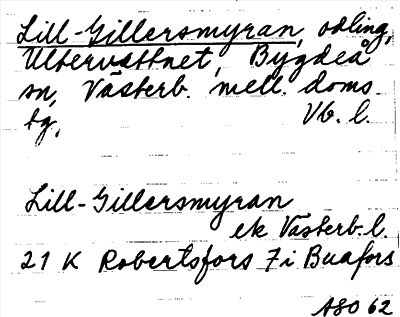 Lill-Gillersmyran, odling,
Ultervattnet, Bygdeå
sn, Västerb. mell. doms.
tg, Vb. l.
Lill-Gillersmyran
ek Västerb. l.
21 K Robertsfors 7i Buafors
ASO 62